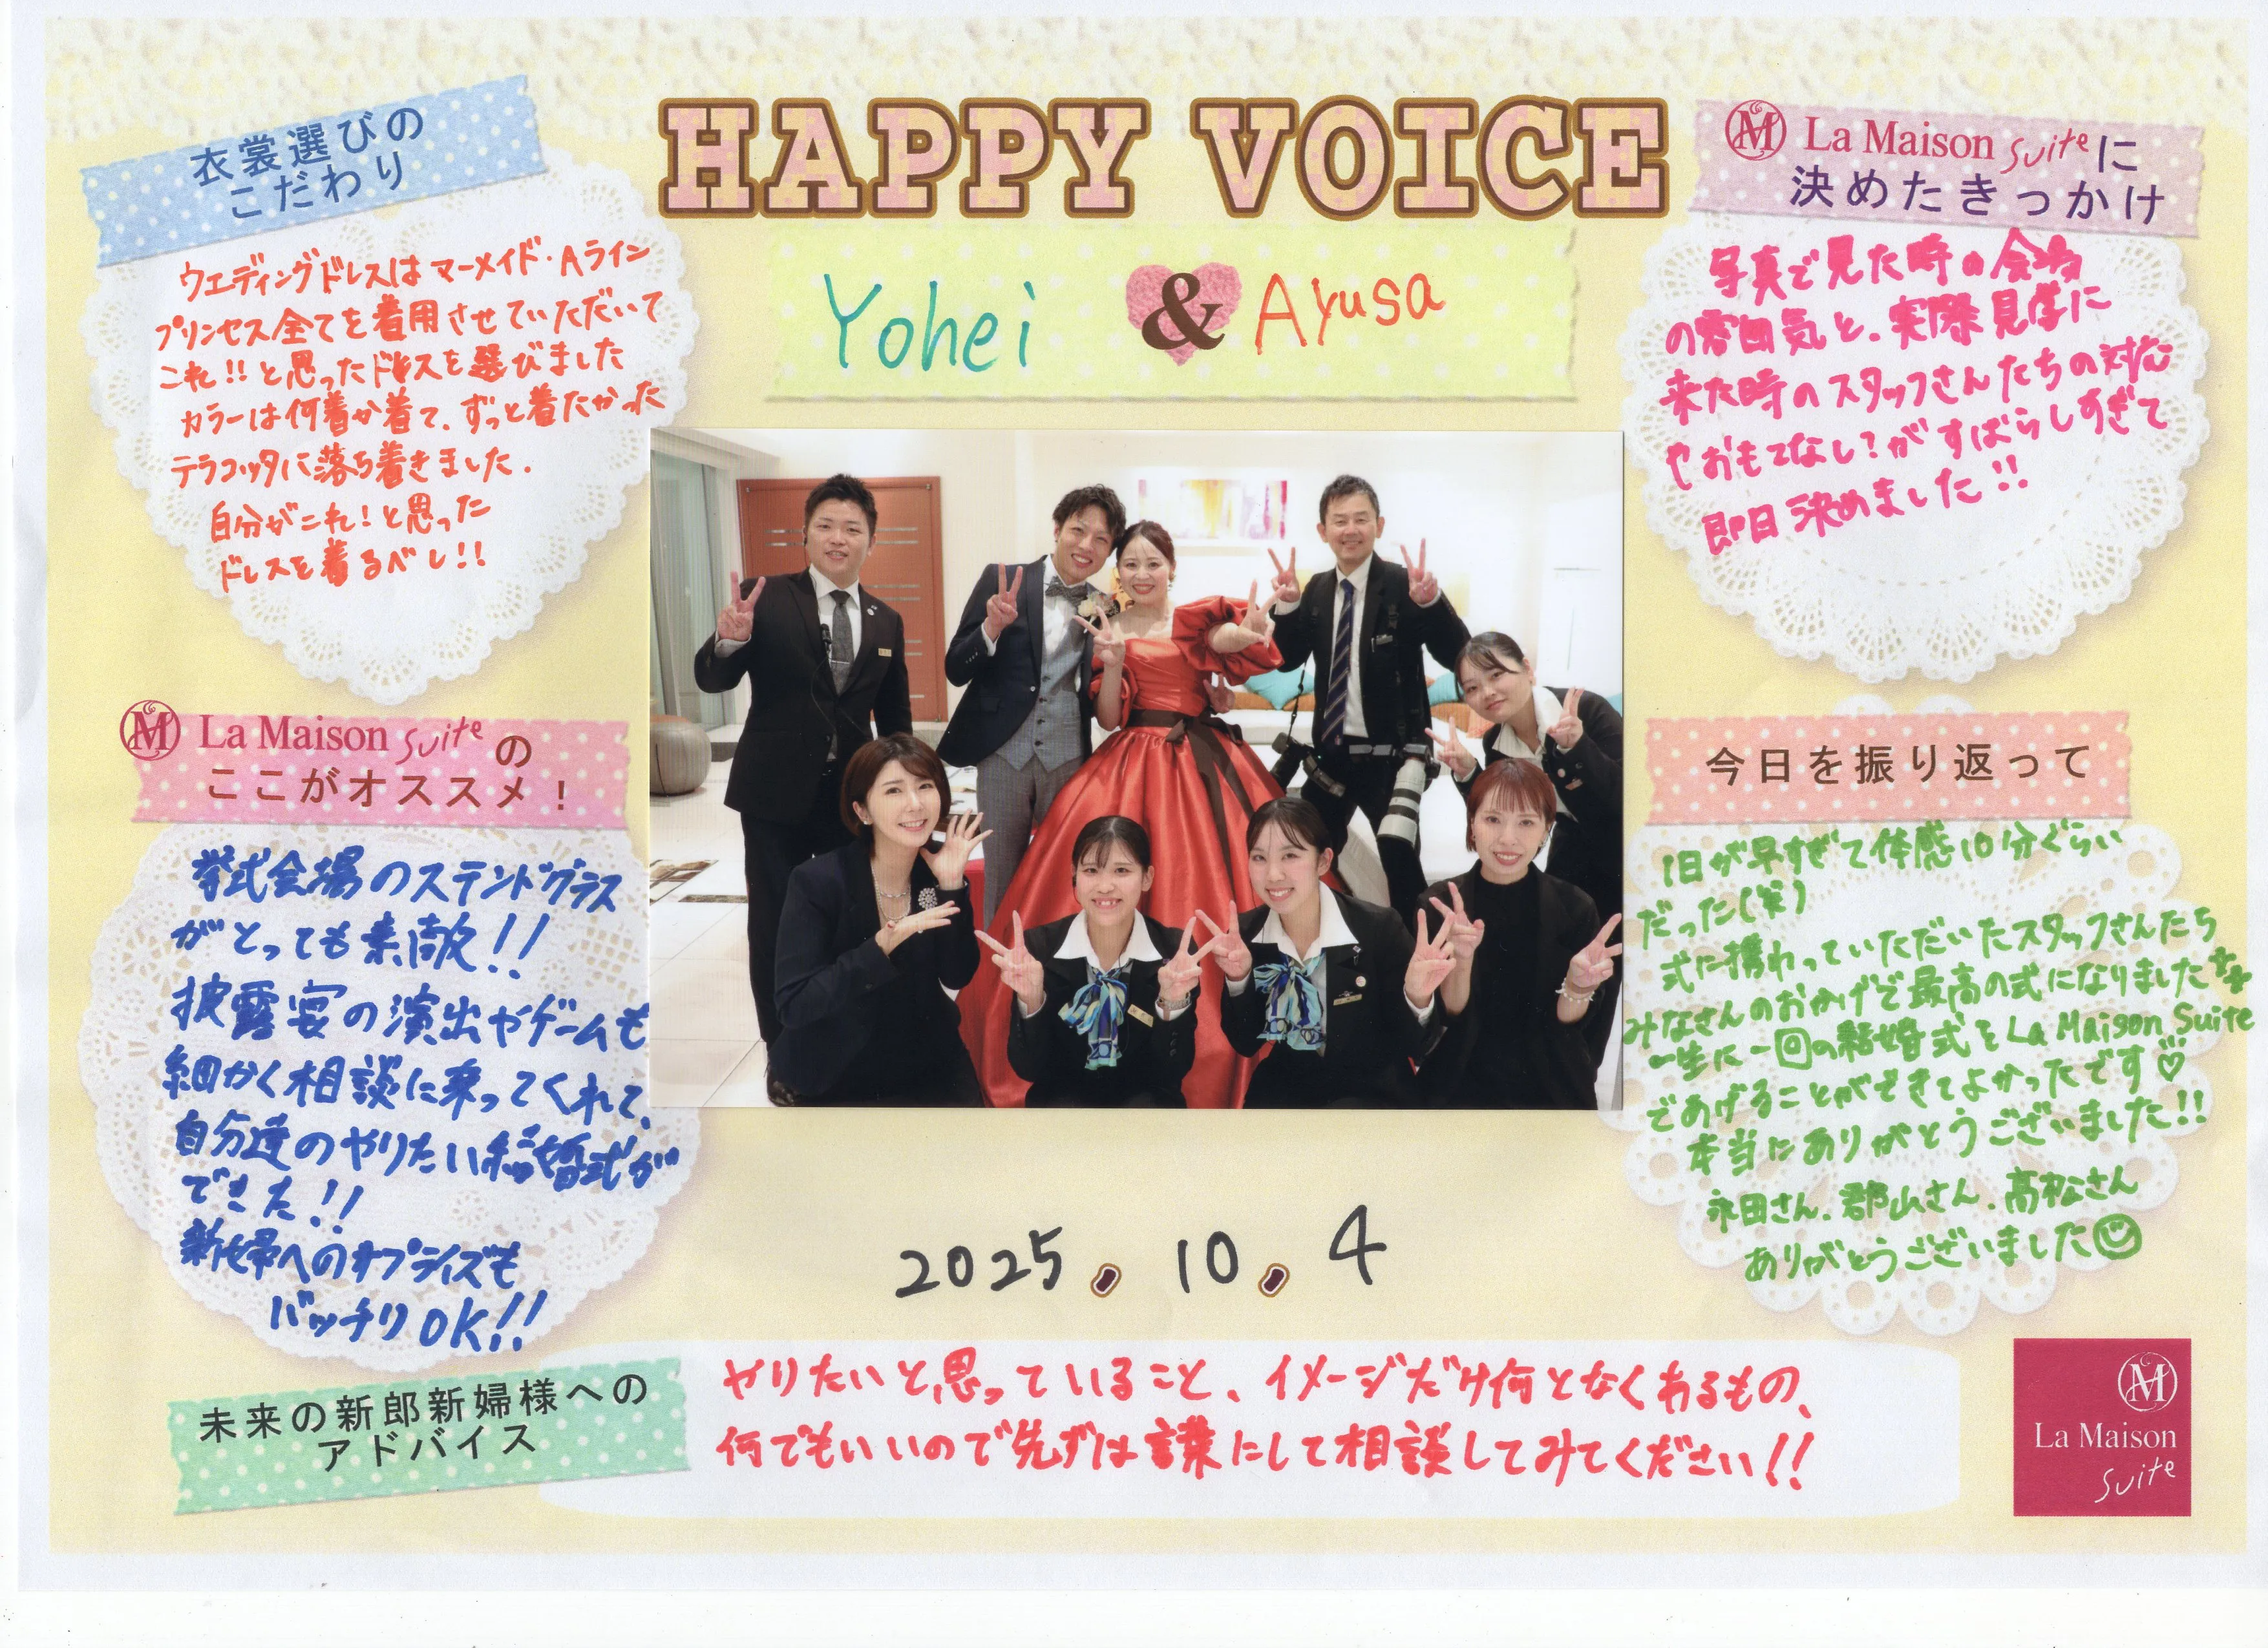 HAPPY VOICE
Yohei & Ayusa
衣裳選びの
こだわり
ウエディングドレスはマーメイド・Aライン
プリンセス全てを着用させていただいて
これ!!と思ったドレスを選びました
カラーは何着か着て、ずっと着たかった
テラコッタに落ち着きました.
自分がこれ!と思った
ドレスを着るべし!!
La Maison Suiteに
決めたきっかけ
写真で見た時の会場
の雰囲気と、実際見学に
来た時のスタッフさんたちの対応
やおもてなし?がすばらしすぎて
即日決めました!!
La Maison Suiteの
ここがオススメ!
挙式会場のステンドグラス
がとっても素敵!!
披露宴の演出やゲームも
細かく相談に乗ってくれて、
自分達のやりたい結婚式が
できた!!
新婦へのサプライズも
バッチリOK!!
今日を振り返って
1日が早すぎて体感10分ぐらい
だった(笑)
式に携わっていただいたスタッフさんたち
みなさんのおかげで最高の式になりました
一生に一回の結婚式をLa Maison Suite
であげることができてよかったです♡
本当にありがとうございました!!
永田さん、郡山さん、髙松さん
ありがとうございました
2025.10.4
未来の新郎新婦様への
アドバイス
やりたいと思っていること、イメージだけ何となくあるもの、
何でもいいので先ずは言葉にして相談してみてください!!
M
La Maison
Suite